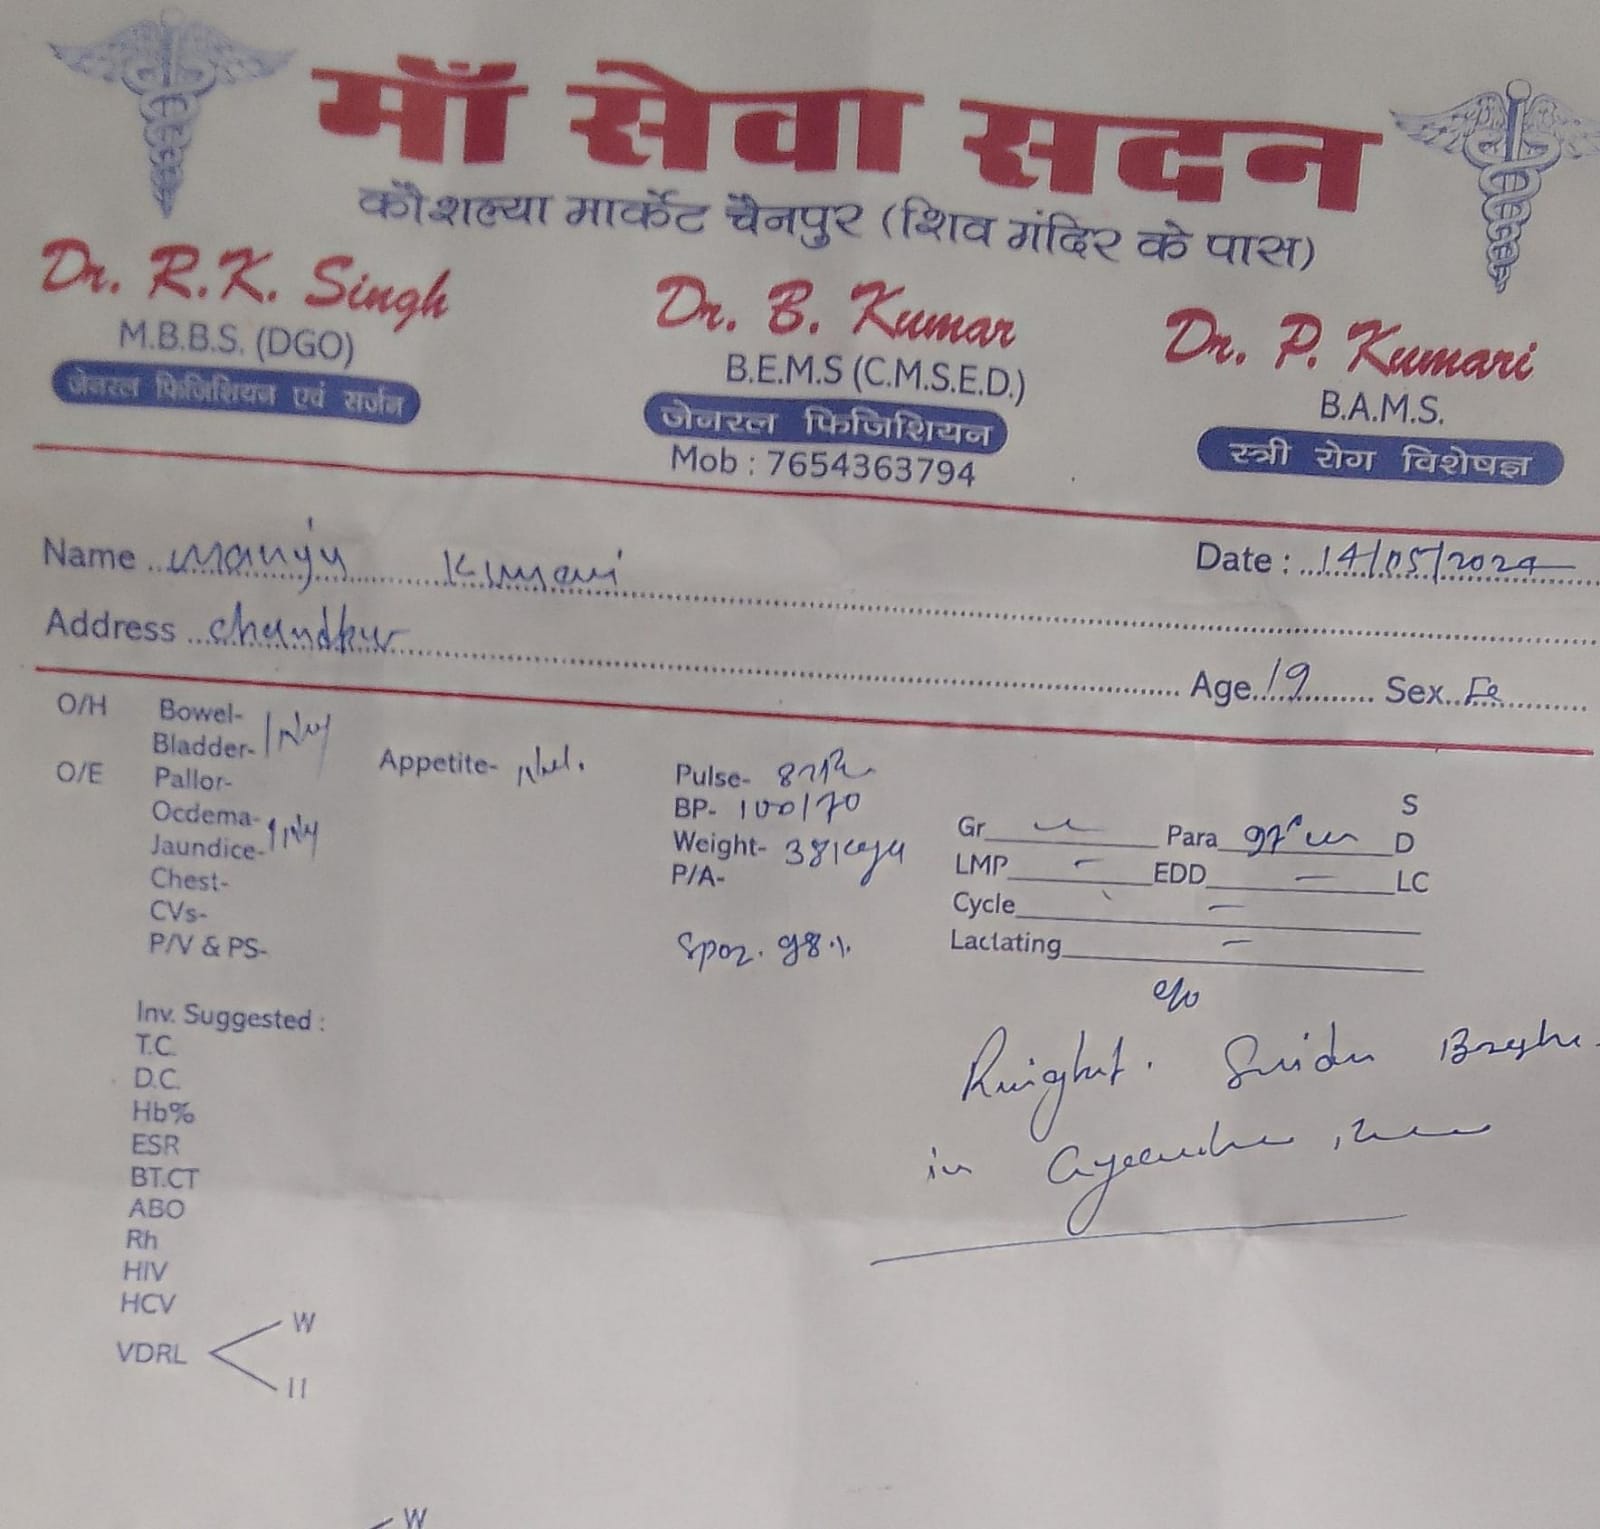 माँ सेवा सदन
कौशल्या मार्केट चैनपुर (शिव मंदिर के पास)
Dr. R.K. Singh
M.B.B.S. (DGO)
जेनरल फिजिशियन एवं सर्जन
Dr. B. Kumar
B.E.M.S (C.M.S.E.D.)
जेनरल फिजिशियन
Mob : 7654363794
Dr. P. Kumari
B.A.M.S.
स्त्री रोग विशेषज्ञ
Name Manju Kumari
Date : 14/05/2024
Address
Age 19 Sex Fe
O/H Bowel-
Bladder-
Appetite-
O/E Pallor-
Ocdema-
Jaundice-
Chest-
CVs-
P/V & PS-
Pulse-
BP- 100/70
Weight- 38
P/A-
SpO2. 98%
S
Gr Para D
LMP - EDD - LC
Cycle -
Lactating -
c/o
in
Inv. Suggested :
T.C.
D.C.
Hb%
ESR
BT.CT
ABO
Rh
HIV
HCV
VDRL
W
II
W